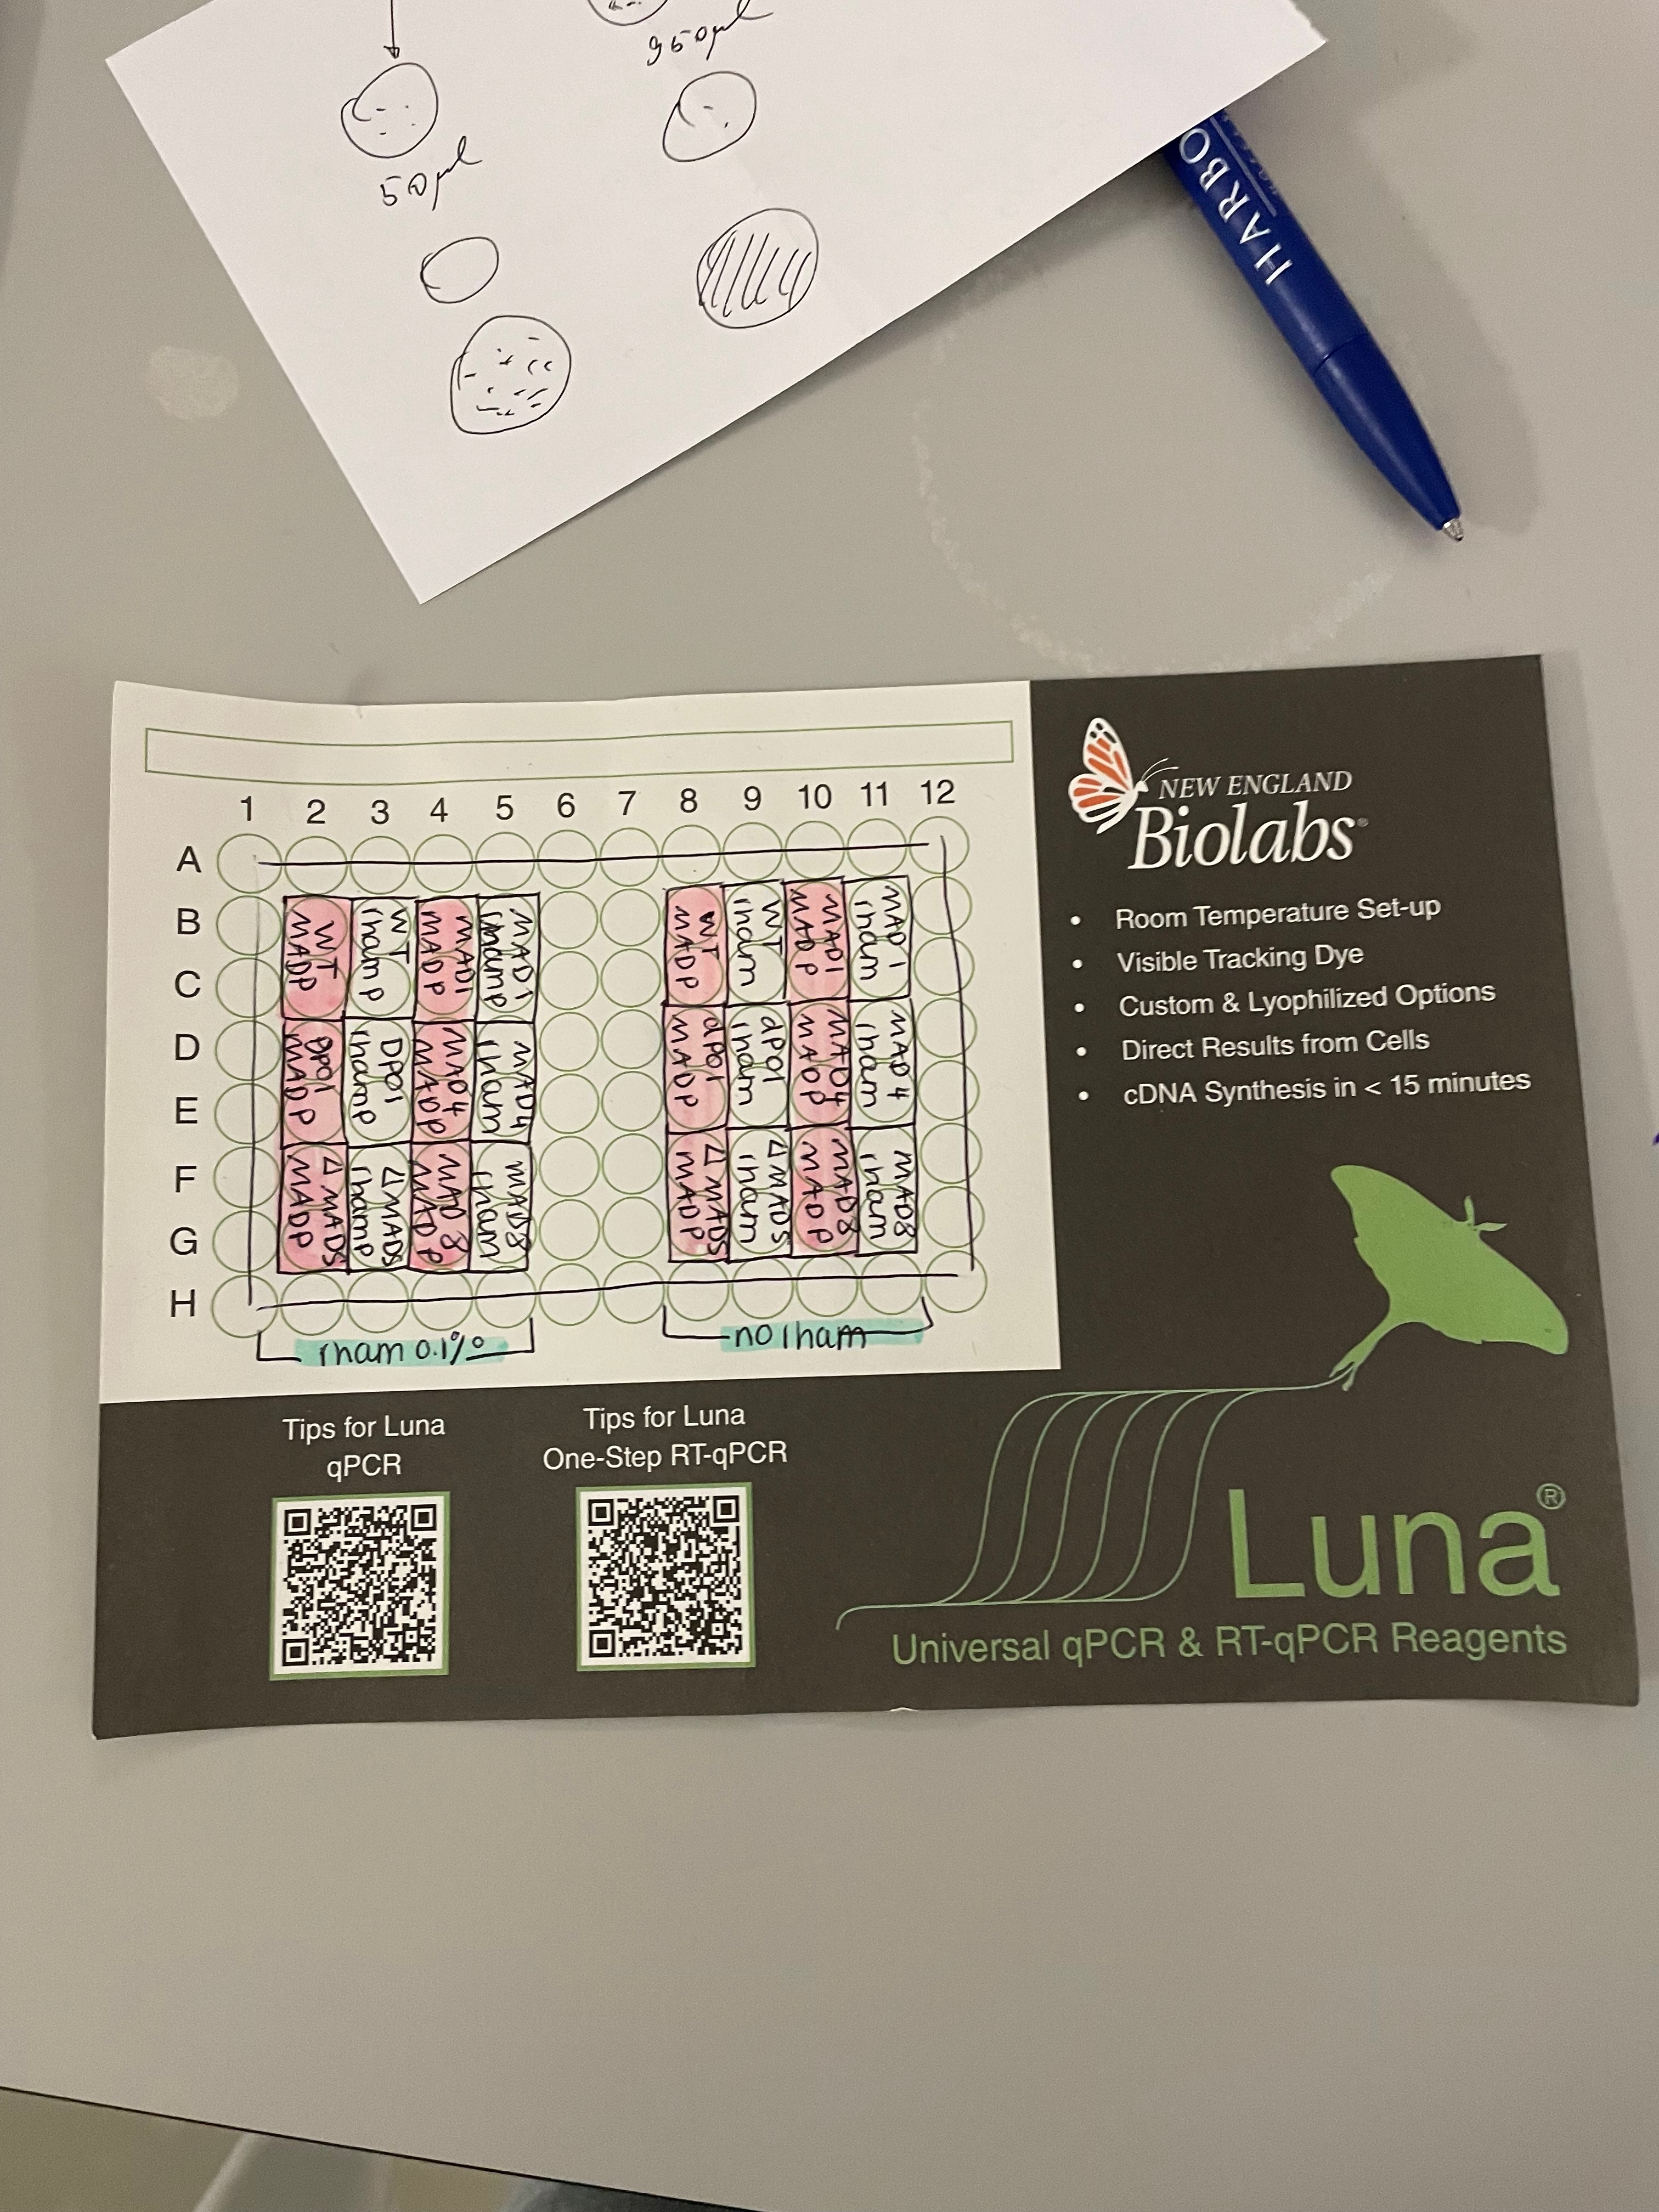 950µl
50µl
HARBO
1 2 3 4 5 6 7 8 9 10 11 12
A
B
C
D
E
F
G
H
WT
MADP
WT
rhamp
MAD1
MADP
MAD1
rhamp
WT
MADP
WT
rham
MAD1
MADP
MAD1
rham
Dpol
MADP
Dpol
rhamp
MAD4
MADP
MAD4
rham
dpol
MADP
dpol
rham
MAD4
MADP
MAD4
rham
Δ MADS
MADP
Δ MADS
rhamp
MAD8
MADP
MAD8
rham
Δ MADS
MADP
Δ MADS
rham
MAD8
MADP
MAD8
rham
rham 0.1%
no rham
NEW ENGLAND
BioLabs®
• Room Temperature Set-up
• Visible Tracking Dye
• Custom & Lyophilized Options
• Direct Results from Cells
• cDNA Synthesis in < 15 minutes
Tips for Luna
qPCR
Tips for Luna
One-Step RT-qPCR
Luna®
Universal qPCR & RT-qPCR Reagents